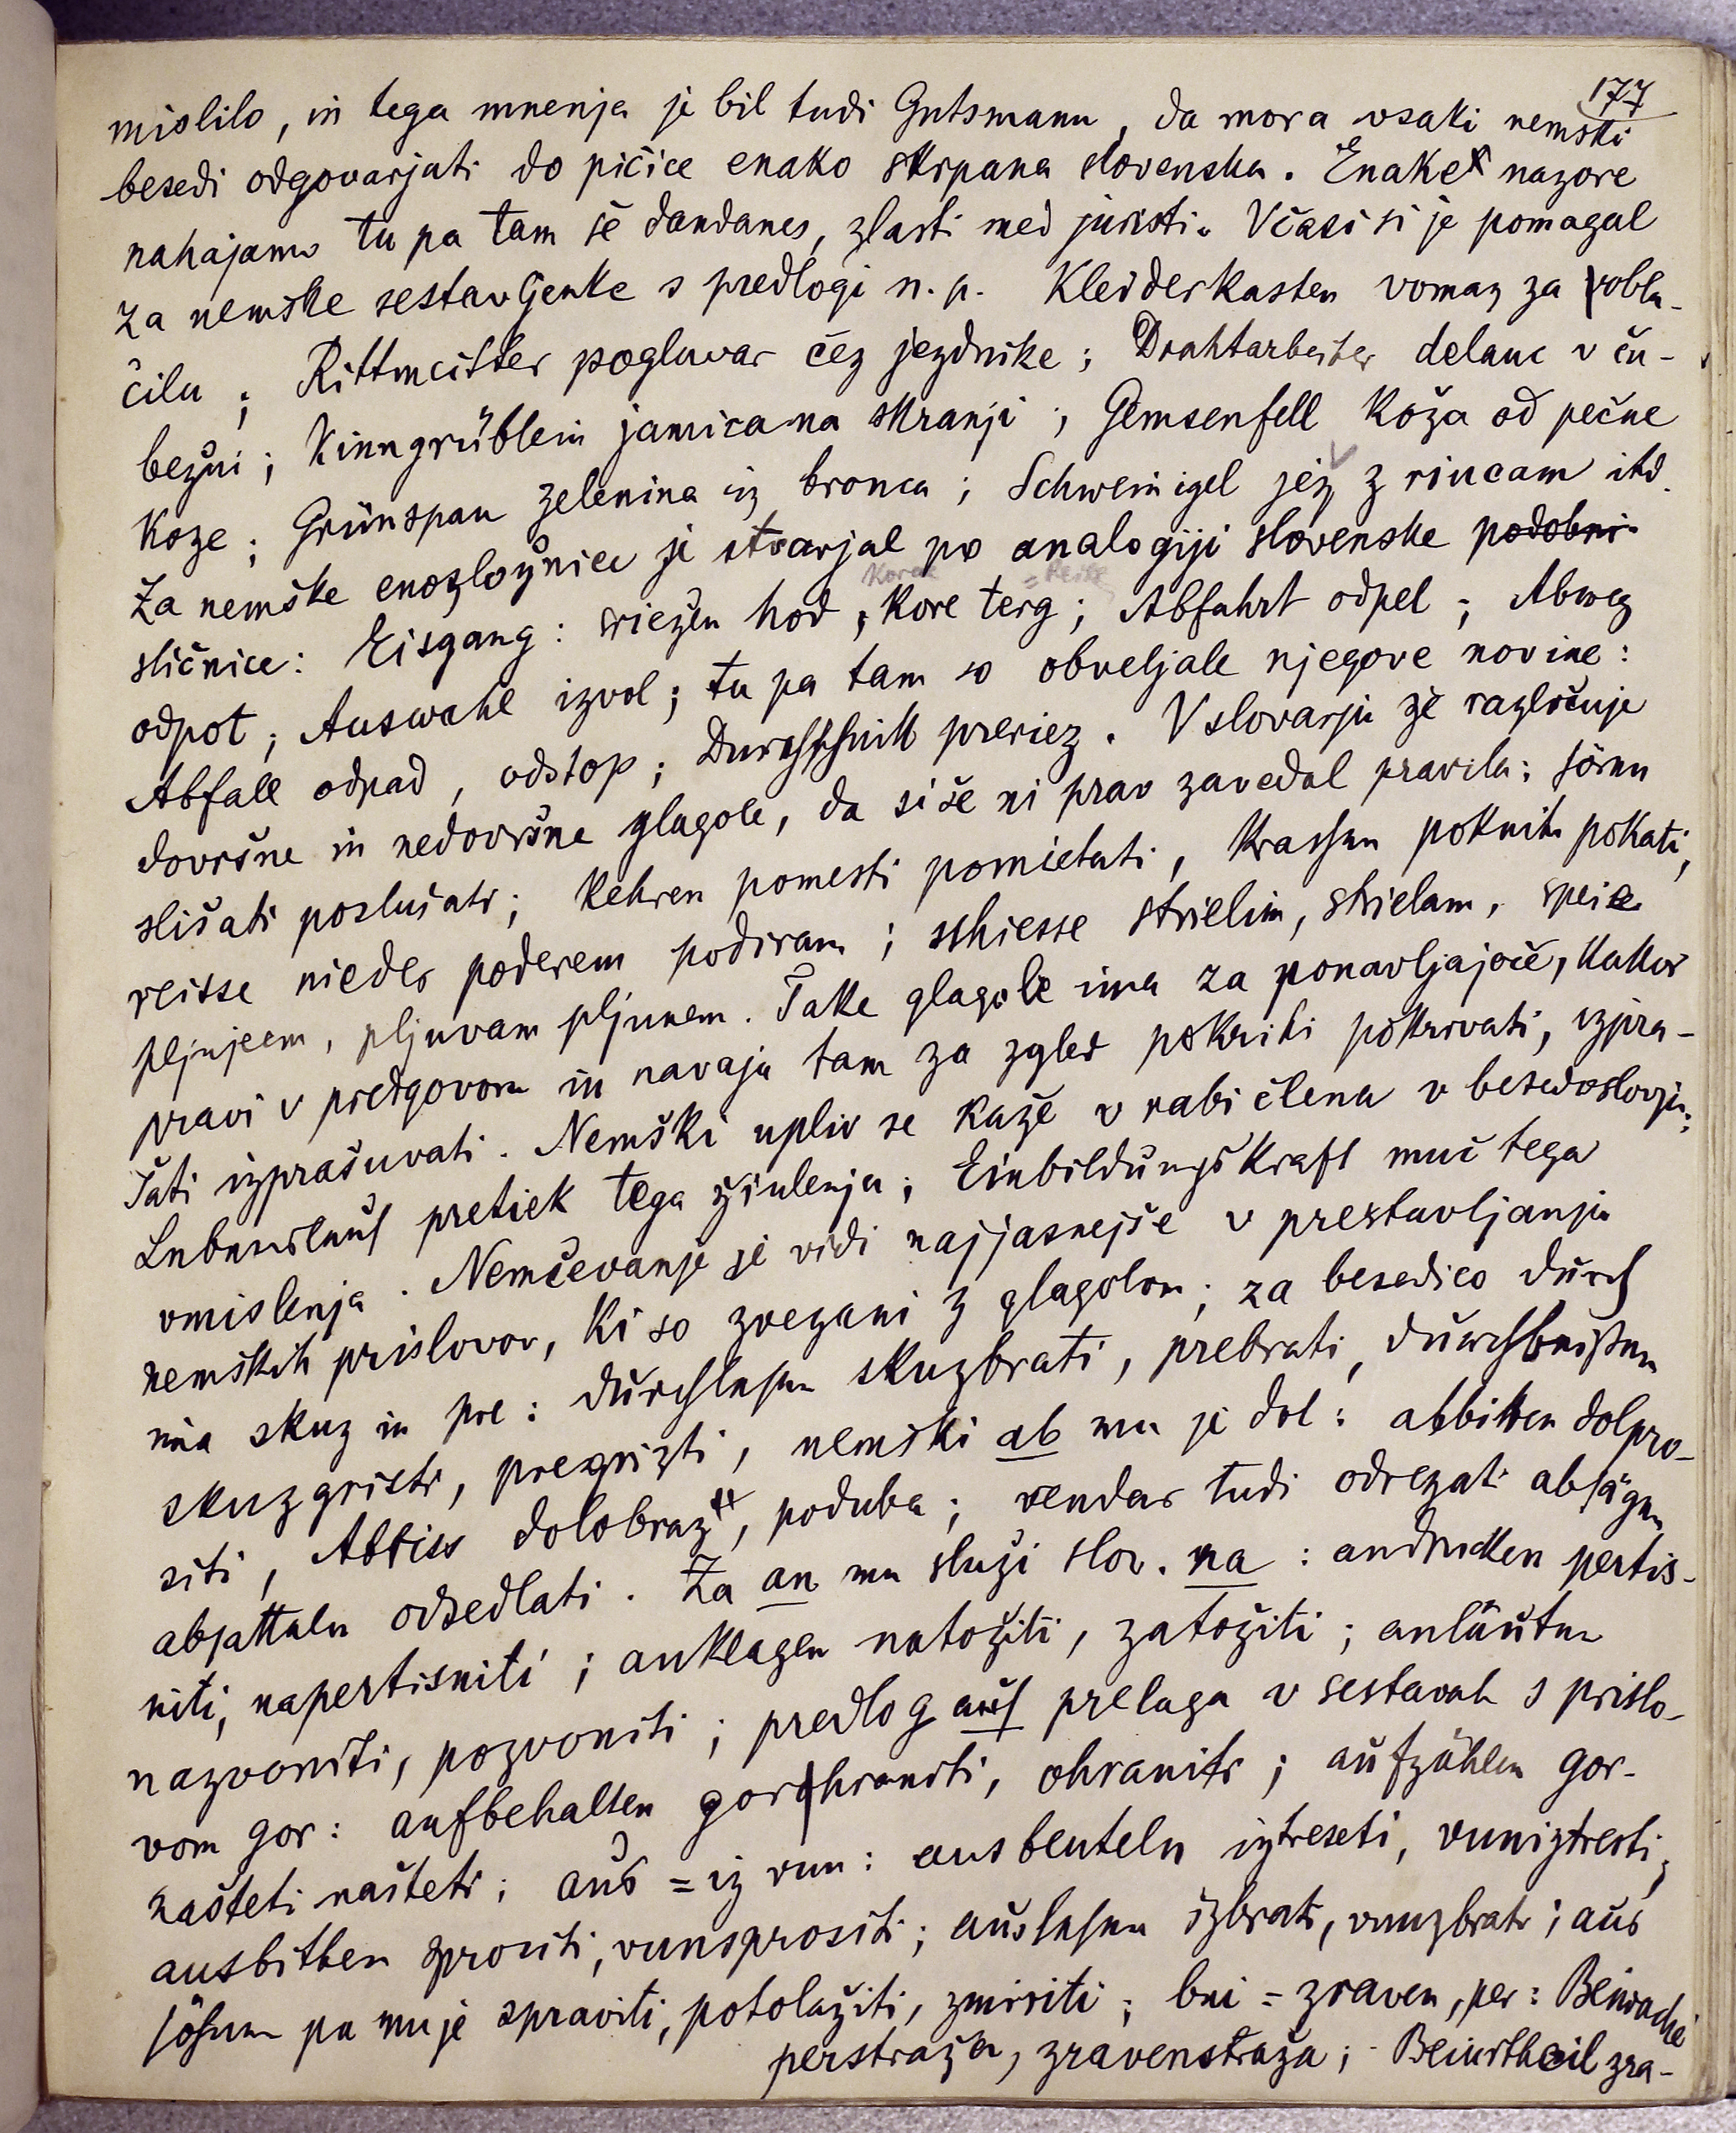 177
mislilo, in tega mnenja je bil tudi Gutsmann, da mora vsaki nemški
besedi odgovarjati do pičice enako skrpana slovenska. Enake nazore
nahajamo tu pa tam še dandanes, zlasti med juristi. Včasi si je pomagal
za nemške sestavljenke s predlogi n. p. Kleiderkasten vomar za obla-
čilu; Rittmeister poglavar čez jezdnike; Drahtarbeiter delauc v ču-
bežni; Kinngrüblein jamica na skranji; Gemsenfell koža od pečne
koze; Grünspan zelenina iz bronca; Schweinigel jež z riucam itd.
Za nemške enozložnice je stvarjal po analogiji slovenske podobni-
sličnice: Eisgang: sriežen hod, kore terg; Abfahrt odpel; Abweg
odpot; Auswahl izvol; tu pa tam so obveljale njegove novine:
Abfall odpad, odstop; Durchschnitt preriez. V slovarju že razločuje
dovršne in nedovršne glagole, da si še ni prav zavedal pravila: hören
slišati poslušati; kehren pomesti pomietati, krachen pokniti pokati,
reisse nieder poderem podiram; schiesse strielim, strielam, speie
pljujem, pljuvam pljunem. Take glagole ima za ponavljajoče, kakor
pravi v predgovoru in navaja tam za zgled pokriti pokrivati, izpra-
šati izprašuvati. Nemški upliv se kaže v rabi člena v besedoslovju:
Lebenslauf pretiek tega žiulenja; Einbildungskraft muč tega
vmislenja. Nemčevanje se vidi najjasnejše v prestavljanju
nemških prislovov, ki so zvezani z glagolom; za besedico durch
ima skuz in pre: durchlesen skuzbrati, prebrati, durchbeißen
skuzgristi, pregrizti, nemški ab mu je dol: abbitten dolpro-
siti, Abriss dolobraz, poduba; vendar tudi odrezati absägen
absatteln odsedlati. Za an mu služi slov. na: andrucken pertis-
niti, napertisniti; anklagen natožiti, zatožiti; anläuten
nazvoniti, pozvoniti; predlog auf prelaga v sestavah s prislo-
vom gor: aufbehalten gorhraniti, ohraniti; aufzählen gor-
našteti našteti; aus = iz vun: ausbeuteln iztreseti, vuniztresti;
ausbitten sprositi, vunsprositi; auslesen izbrati, vunzbrati; aus
söhnen pa mu je spraviti, potolažiti, zmiriti; bei = zraven, per: Beiwache
perstraža, zravenstraža; Beiurtheil zra-